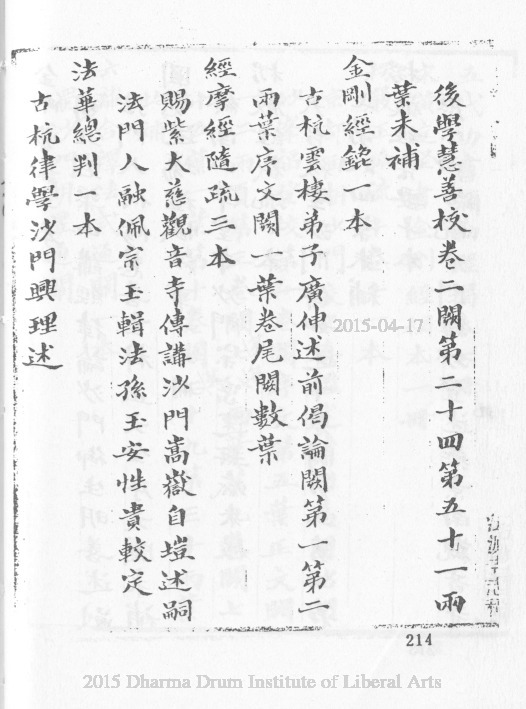 後學慧善校卷二闕第二十四第五十一兩
葉未補
金剛經銘一本
古杭雲棲弟子廣伸述前偈論闕第一第二
兩葉序文闕一葉卷尾闕數葉
維摩經隨疏三本
賜紫大慈觀音寺傳講沙門嵩嶽自塏述嗣
法門人融佩宗玉輯法孫玉安性貴較定
法華總判一本
古杭律學沙門興理述
214
2015-04-17
2015 Dharma Drum Institute of Liberal Arts